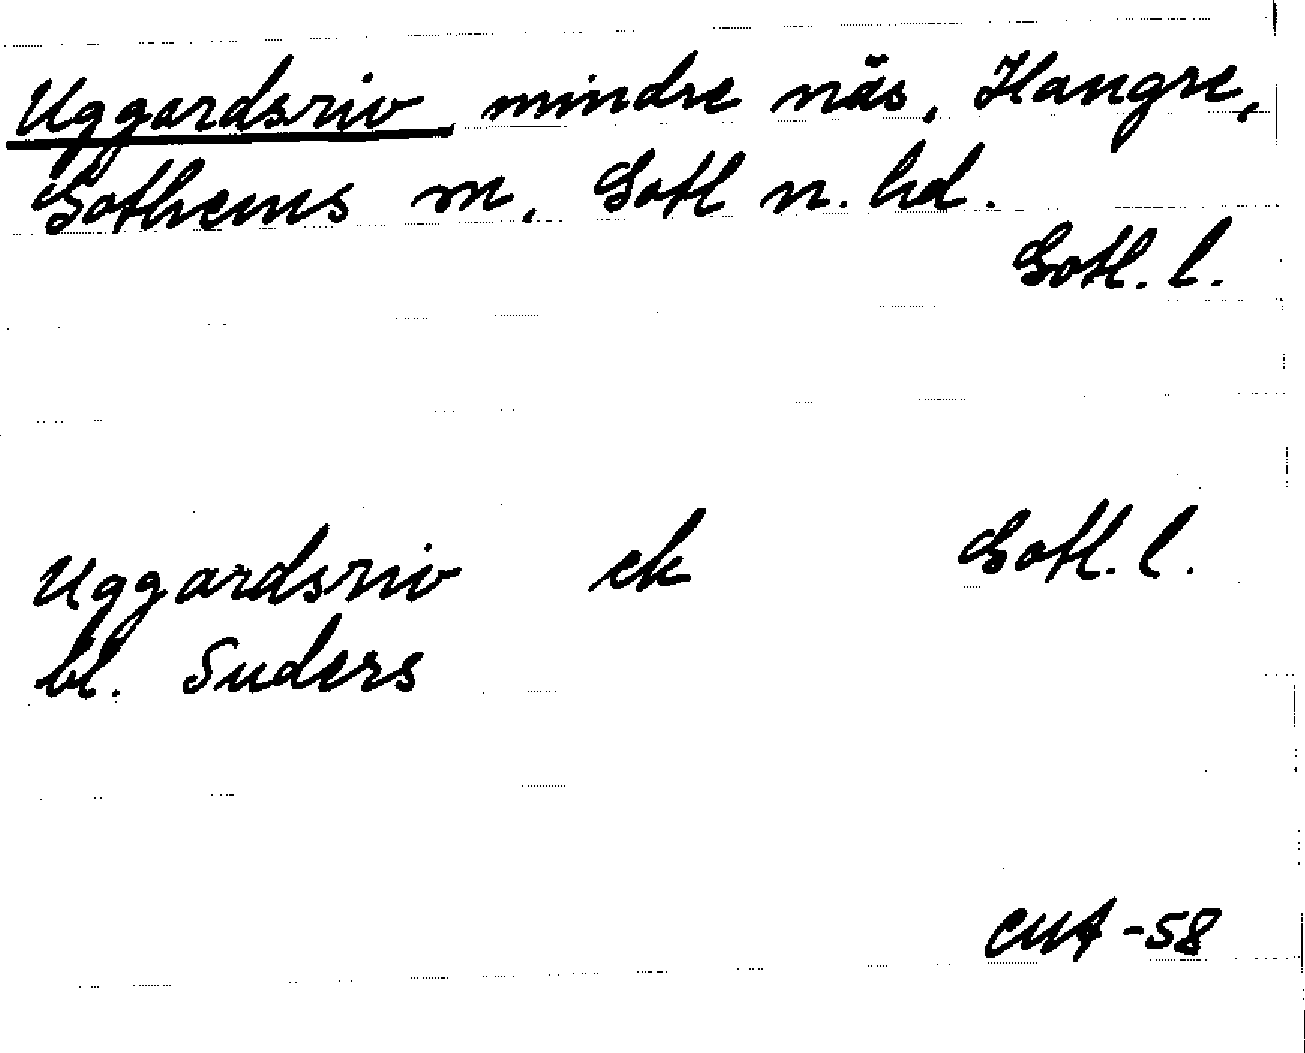 Uggardsriv mindre näs, Hangre,
Gothems m, Gotl n. hd.
Gotl. l.
Uggardsriv ek Gotl. l.
bl. Suders
CMA -58